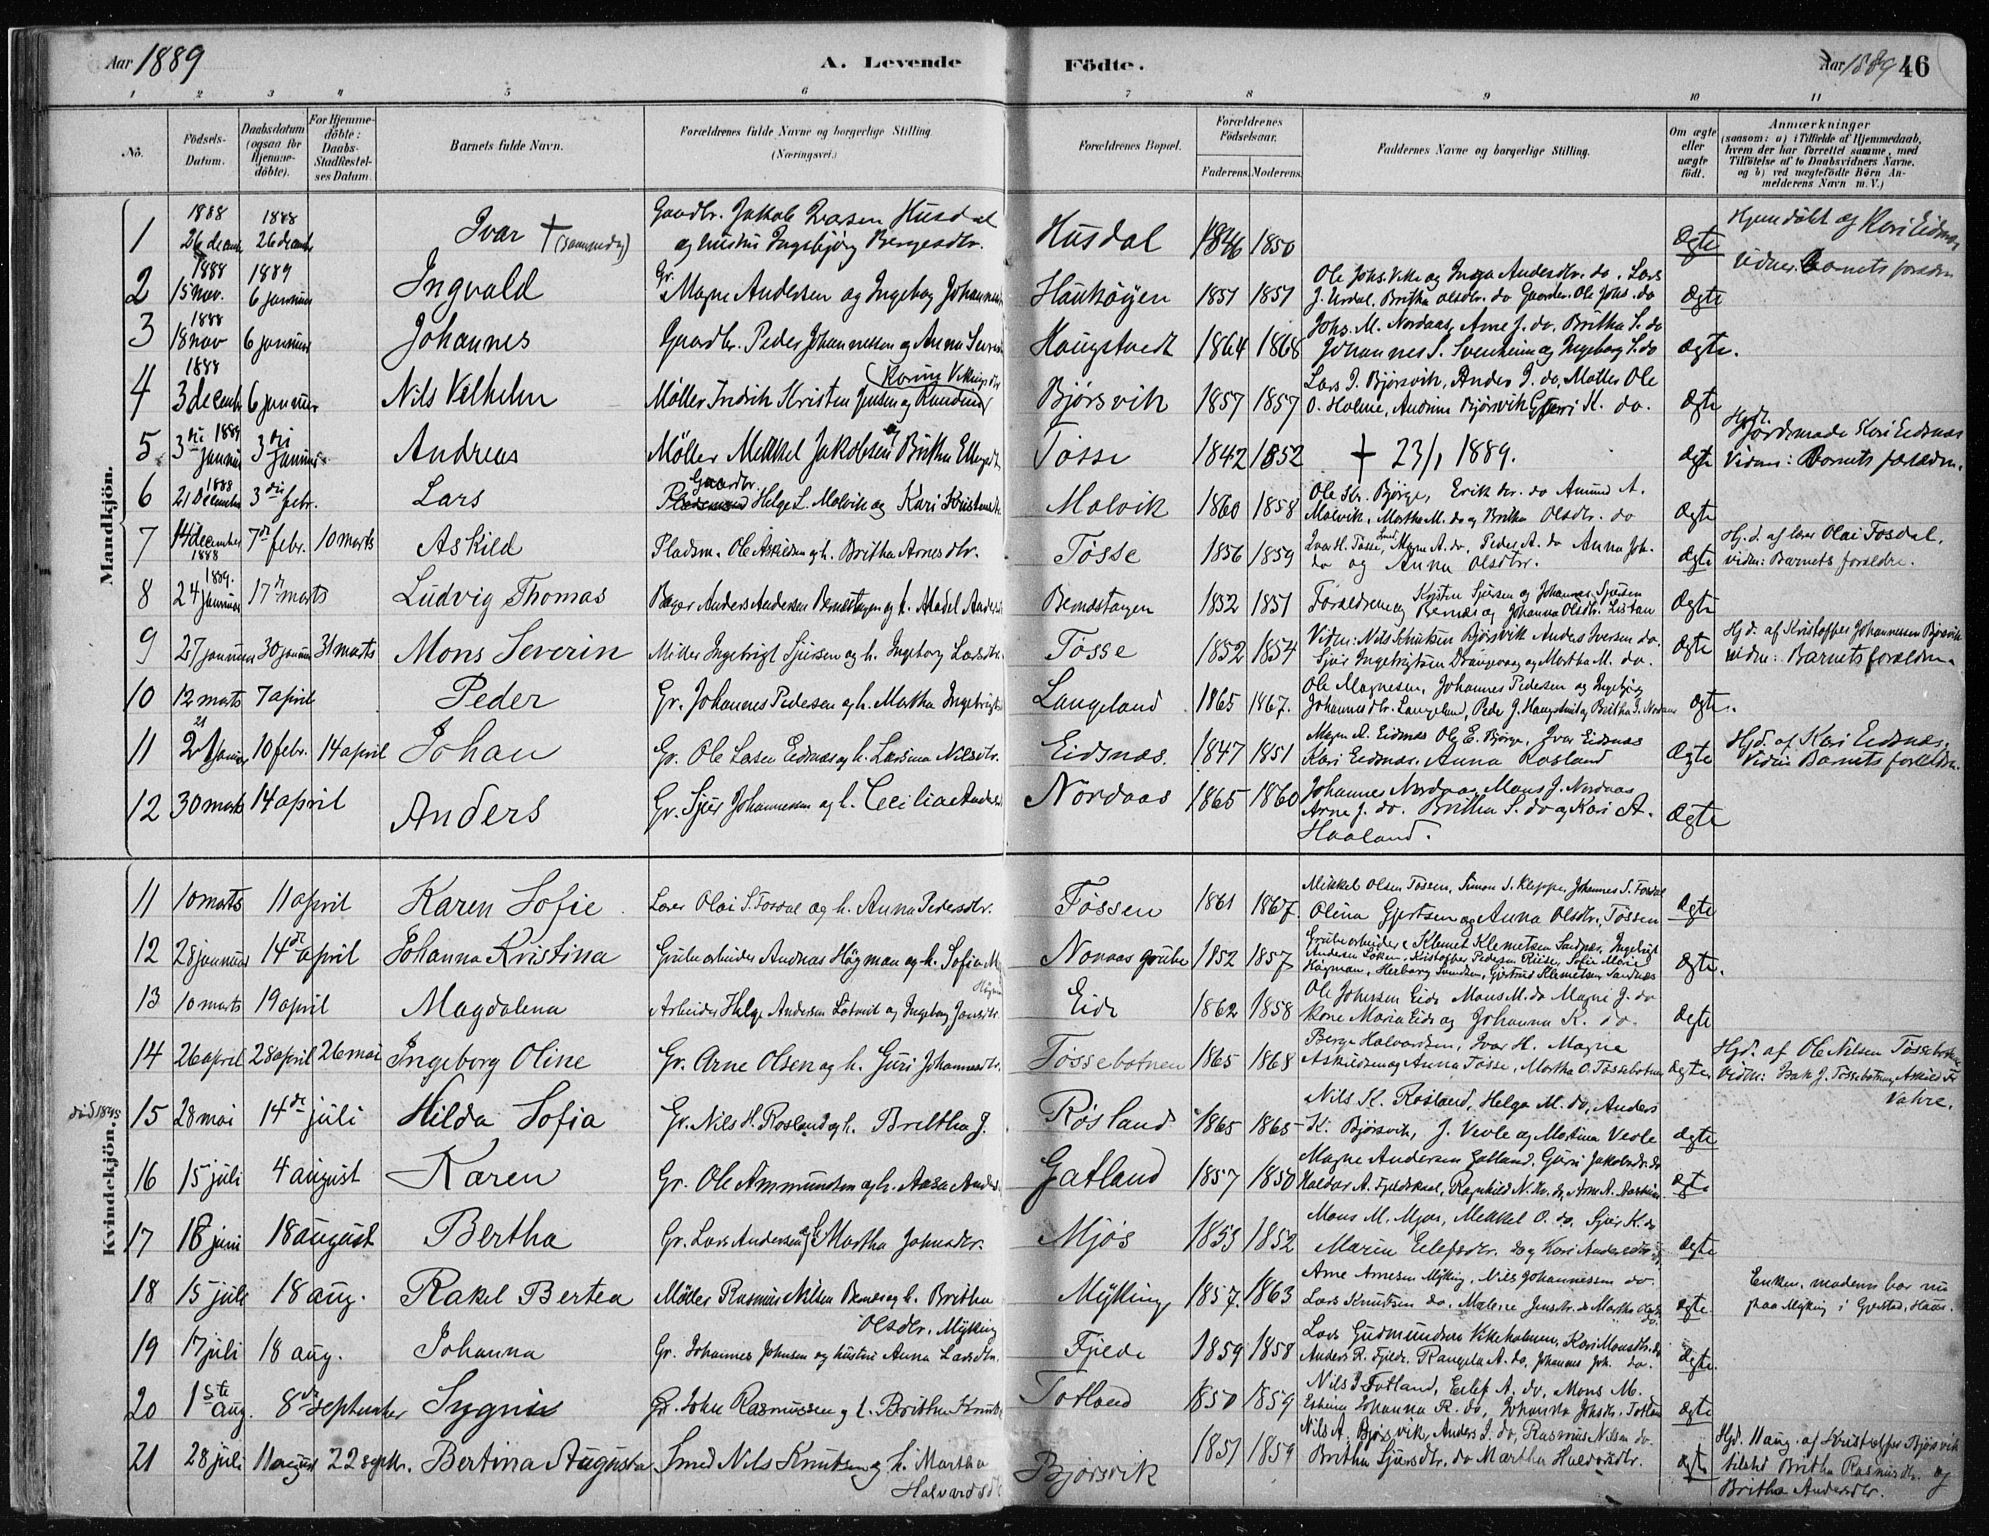 Aar 1889
A. Levende Födte.
Aar 1889 46
1 2 3 4 5 6 7 8 9 10 11
No. Födsels-Datum. Daabsdatum (ogsaa for Hjemmedöbte). For Hjemmedöbte: Daabs-Stadfæstelses Datum. Barnets fulde Navn. Forældrenes fulde Navne og borgerlige Stilling (Næringsvei.) Forældrenes Bopæl. Forældrenes Födselsaar. Faderens. Moderens. Faddernes Navne og borgerlige Stilling. Om ægte eller uægte födt. Anmærkninger (saasom: a) i Tilfælde af Hjemmedaab, hvem der har forrettet samme, med Tilföielse af to Daabsvidners Navne, og b) ved uægtefödte Börn Anmelderens Navn m. V.)
Mandkjön.
1 1888 26 decemb 1888 26 decemb Ivar † Gaardbr. Jakob Larsen Husdal og hustru Ingebjørg Bergesdtr. Husdal 1846 1850 Ægte Hjemdöbt af Kari Eidnes Vidner: Barnets forældre
2 1888 15 nov. 1889 6 januar Ingvald Gr. Magne Andersen og Ingeborg Johannesd Haukøyen 1857 1857 Ole Johs. Vike og Inga Andersdtr. do. Lars J. Urdal, Britha Olsdtr. do Gaardm. Ole Johs. do Ægte
3 1888 18 nov 6 januar Johannes Gaardbr. Peder Johannessen og Anna Haugstvedt 1864 1868 Johs. M. Nordaas, Arne J. do, Britha S. do Johannes S. Svenheim og Ingeborg S. do Ægte.
4 1888 3 decemb 6 januar Nils Vilhelm Möller Fredrik Kristen Jensen og Bjørsvik 1857 1857 Lars J. Bjørsvik, Anders J. do, Møller Ole O. Holme, Andrine Bjørsvik K. do. Ægte
5 3die januar 1889 3die januar Andreas Møller Mikkel Jakobsen og Britha Tösse 1842 1852 † 23/1 1889. Ægte Hjd. Jordemode Kari Eidsnæs Vidner: Barnets forældre.
6 21 December 1888 3die febr. Lars Gaardbr. Helge L. Molvik og Kari Kristensdt. Molvik 1860 1858 Ole Bjørge, Erik do Amund A. Molvik, Martha M. do og Britha Olsdtr. do Ægte
7 14 december 1888 7de febr. 10 marts Askild Pladsm. Ole Askildsen og h. Britha Arnesdtr. Tøsse 1856 1859 Ivar H. Tøsse, Magne A. do, Peder A. do Anna Joh. do og Anna Olsdtr. Ægte Hj. d. af lærer Olai Fosdal. vidn: Barnets forældre.
8 1889. 24 januar 17de marts Ludvig Thomas Anders Andersen og h. Madel Anders Bernestangen 1852 1851 Forældrene og Kristen Sjursen og Johannes Sjursen Bernes og Johanna Olsdtr. Ægte
9 27 januar 30 januar 31 marts Mons Severin Möller Ingebrigt Sjursen og h. Ingeborg Larsdtr. Tøsse 1852 1854 Vidn: Nils Knutsen Bjørsvik Anders Iversen do. Sjur Ingebrigtsen Drangevaag og Martha M. do. Ægte Hjd. af Kristoffer Johannessen Bjørsvik vidn: Barnets forældre.
10 12 marts 7 april Peder Gr. Johannes Pedersen og h. Martha Ingebrigts Langeland 1865 1867. Ole Magnesen, Johannes Pedersen og Ingebjørg Johannesdtr. Langeland, Peder J. Haugstvedt og Britha J. Nordaas Ægte.
11 21 januar 10 febr. 14 april Johan Gr. Ole Larsen Eidsnæs og h. Larsina Nilsdtr. Eidsnæs. 1847 1851 Magne A. Eidsnæs Ole E. Bjørge, Ivar Eidsnæs Kari Eidsnæs, Anna Rosland Ægte Hjd. af Kari Eidsnæs. Vidn: Barnets forældre.
12 30 marts 14 april Anders Gr. Sjur Johannessen og h. Cecilia Anders Nordaas 1865 1860 Johannes Nordaas, Mons J. Nordaas Arne J. do. Britha S. do og Kari A. Haaland. Ægte
Kvindekjön.
11 10 marts 11 april Karen Sofie Lærer Olai S. Fosdal og h. Anna Pedersdtr. Tøssen 1861 1867. Mikkel Olsen Tøssen, Simon S. Kleppe, Johannes S. Fosdal Olina Gjertsen og Anna Olsdtr. Tøssen Ægte
12 28 januar 14de april Johanna Kristina Grubearbeider Andreas Högman og h. Sofia M Högman Nonaas grube 1852 1857 Grubearbeider Klemet Klemetsen Sandnæs, Ingebrigt Andersen Løken, Kristoffer Pedersen Riise, Sofie Marie Högman, Herborg Svendsen, Gjertrud Klemetsen Sandnæs Ægte.
13 10 marts 19 april Magdalena Arbeider Helge Andersen Lotveit og Ingeborg Jonsdtr. Eide 1862 1858 Ole Johnsen Eide Mons M. do Magne J. do kone Maria Eide og Johanna K. do. Ægte
14 26 april 28 april 26 mai Ingeborg Oline Gr. Arne Olsen og h. Guri Johannesdtr. Tøssebotnen 1865 1868 Berge Halvardsen, Ivar H. Magne Askildsen og Anna Tøsse, Martha O. Tøssebotnen Ægte Hjd. af Ole Nilsen Tøssebotnen Vidn: Isak J. Tøssebotnen, Askild Fr Vahre.
död 1945 15 28 mai 14de juli Hilda Sofia Gr. Nils H. Rosland og h. Britha J. Rösland 1865 1865 Nils K. Rosland, Helga M. do, Anders K. Bjørsvik, J. Veole og Martina Veole Ægte
16 15 juli 4 august Karen Gr. Ole Ammundsen og h. Aasa Anders Gatland 1857 1850 Magne Andersen Gatland, Guri Jakobsdr. do Haldor A. Fjeldskaal, Ragnhild N. do, Arne A. Ægte
17 18 juni 18 august Bertha Gr. Lars Andersen og Martha Johnsdtr. Mjös 1853 1852 Mons M. Mjøs, Mikkel O. do, Sjur K. do Maren Eilefsdtr. do og Kari Andersdtr. Ægte
18 15 juli 18 aug. Rakel Bertea Möller Rasmus Nilsen Bernes og h. Britha Olsdtr. Mykking Mykking 1857. 1863 Arne Arnesen Mykking, Nils Johannessen do. Lars Knutsen do, Malene Jensdtr. do Martha Ægte Enken, moderen bor nu paa Myking i Gjerstad, Haus.
19 17 juli 18 aug. Johanna Gr. Johannes Johnsen og hustru Anna Larsdtr. Fjelde 1859 1858 Lars Gudmundsen Vikeholmen, Kari Monsdtr. do Anders R. Fjelde. Rangela A. do, Johannes Joh. do. Ægte
20 1ste aug. 8de september Sygni Gr. John Rasmussen og h. Britha Knuts Totland 1850 1859 Nils J. Totland, Eilef A. do, Mons M. Johanna R. do, Johanna Johsdr. Totland Ægte
21 28 juli 11 august 22 septbr. Bertina Augusta Smed Nils Knutsen og h. Martha Halvardsd Bjørsvik 1851 1859 Nils A. Bjørsvik, Anders J. do, Rasmus Nilsen do. Britha Sjursdtr. do Martha Haldorsdtr. Ægte Hjd. 11 aug. af Kristoffer Bjørsvik tilsted Britha Rasmusdtr. og Britha Andersdtr.